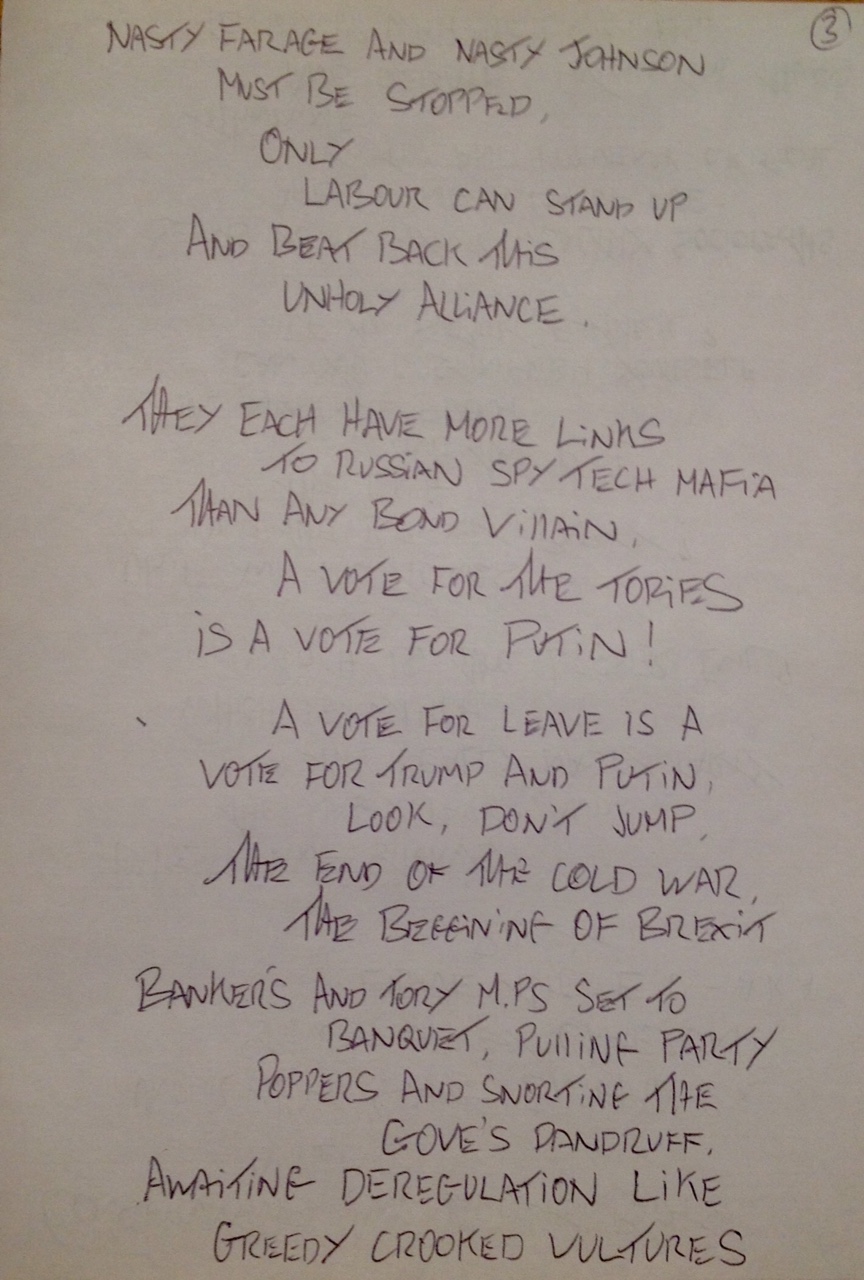 3
NASTY FARAGE AND NASTY JOHNSON
MUST BE STOPPED,
ONLY
LABOUR CAN STAND UP
AND BEAT BACK THIS
UNHOLY ALLIANCE.
THEY EACH HAVE MORE LINKS
TO RUSSIAN SPY TECH MAFIA
THAN ANY BOND VILLAIN,
A VOTE FOR THE TORIES
IS A VOTE FOR PUTIN!
A VOTE FOR LEAVE IS A
VOTE FOR TRUMP AND PUTIN,
LOOK, DON'T JUMP,
THE END OF THE COLD WAR,
THE BEGGINING OF BREXIT
BANKER'S AND TORY M.PS SET TO
BANQUET, PULLING PARTY
POPPERS AND SNORTING THE
GOVE'S DANDRUFF,
AWAITING DEREGULATION LIKE
GREEDY CROOKED VULTURES